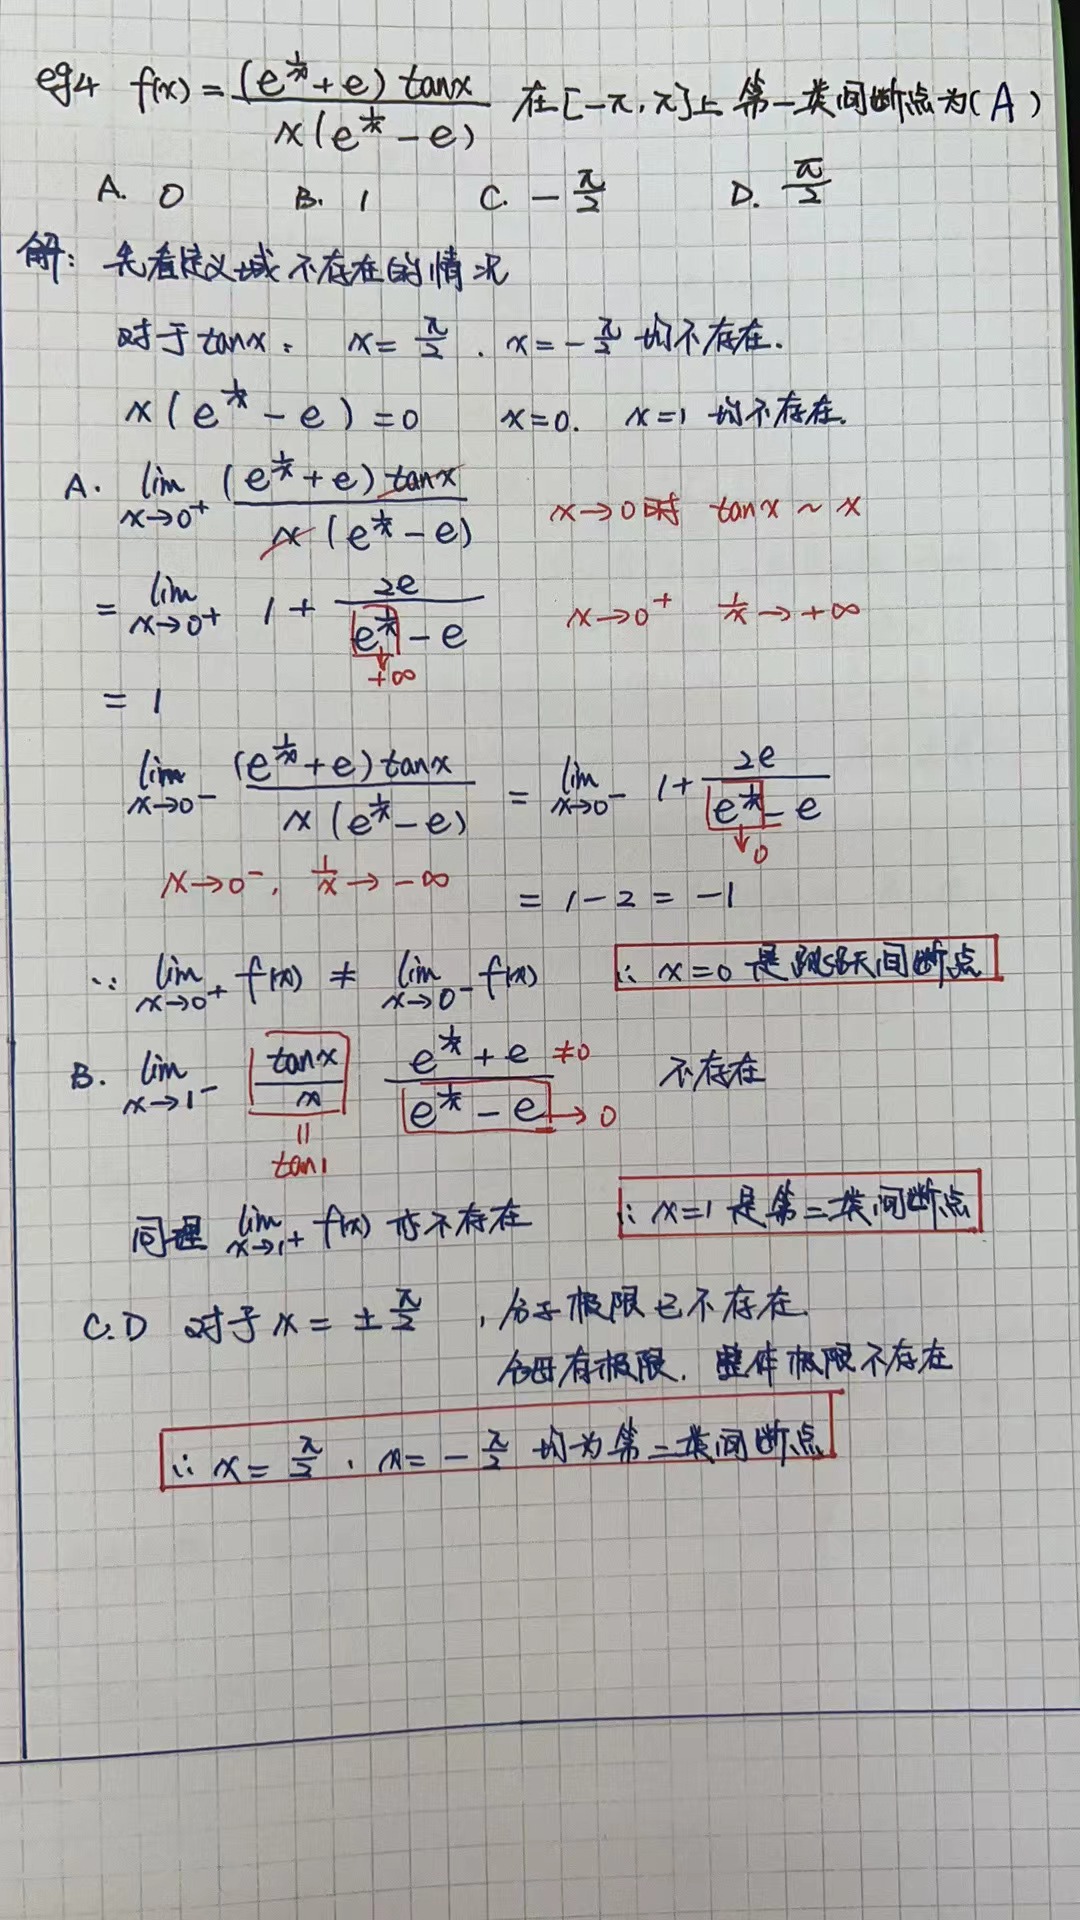 eg4 f(x) = (e^{1/x}+e) tanx / x(e^{1/x} - e) 在[-π, π]上 第一类间断点为(A)
A. 0 B. 1 C. -π/2 D. π/2
解: 先看定义域不存在的情况
对于tanx, x = π/2 , x = -π/2 均不存在.
x(e^{1/x} - e) = 0 x=0. x=1 均不存在.
A. lim x→0⁺ (e^{1/x}+e) tanx / x(e^{1/x} - e) x→0时 tanx ~ x
= lim x→0⁺ 1 + 2e / e^{1/x} - e x→0⁺ 1/x → +∞
↓ +∞
= 1
lim x→0⁻ (e^{1/x}+e) tanx / x(e^{1/x} - e) = lim x→0⁻ 1 + 2e / e^{1/x} - e
↓ 0
x→0⁻, 1/x → -∞ = 1 - 2 = -1
∵ lim x→0⁺ f(x) ≠ lim x→0⁻ f(x) ∴ x=0 是跳跃间断点
B. lim x→1⁻ tanx / x e^{1/x} + e ≠0 / e^{1/x} - e →0 不存在
॥ tan1
同理 lim x→1⁺ f(x) 亦不存在 ∴ x=1 是第二类间断点
C.D 对于 x = ±π/2 , 分子极限已不存在.
分母有极限. 整体极限不存在
∴ x = π/2 , x = -π/2 均为第二类间断点